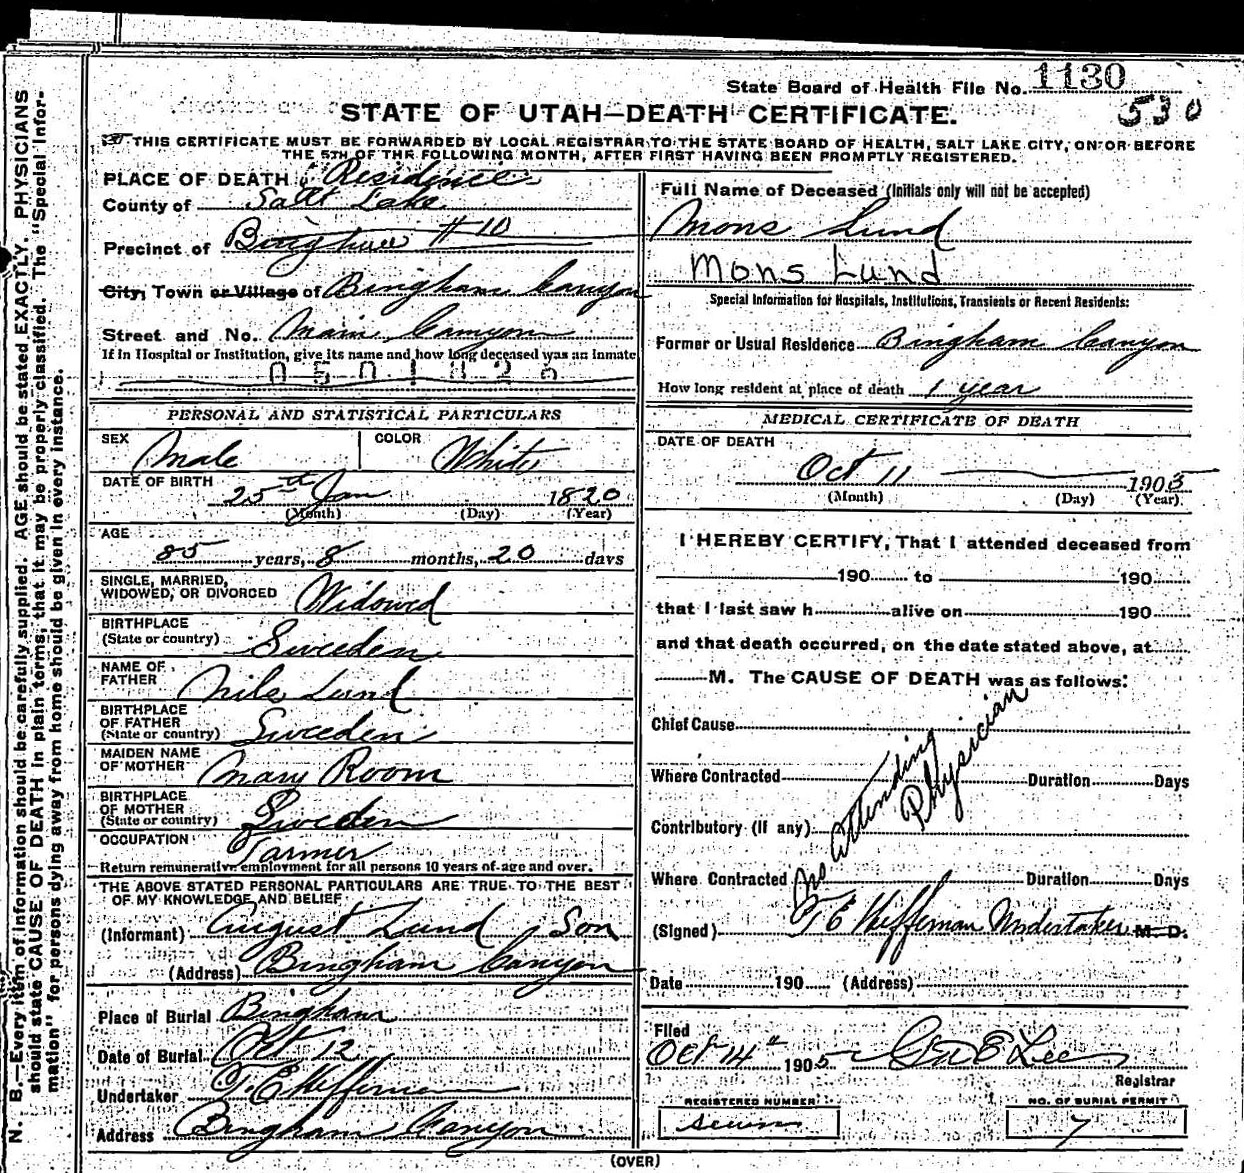 State Board of Health File No. 1130
530
STATE OF UTAH—DEATH CERTIFICATE.
THIS CERTIFICATE MUST BE FORWARDED BY LOCAL REGISTRAR TO THE STATE BOARD OF HEALTH, SALT LAKE CITY, ON OR BEFORE
THE 5TH OF THE FOLLOWING MONTH, AFTER FIRST HAVING BEEN PROMPTLY REGISTERED.
PLACE OF DEATH Residence
County of Salt Lake
Precinct of Bingham #10
City, Town or Village of Bingham Canyon
Street and No. Main Canyon
If in Hospital or Institution, give its name and how long deceased was an inmate
0501826
PERSONAL AND STATISTICAL PARTICULARS
SEX Male COLOR White
DATE OF BIRTH 25th Jan 1820
(Month) (Day) (Year)
AGE
85 years, 8 months, 20 days
SINGLE, MARRIED,
WIDOWED, OR DIVORCED Widowed
BIRTHPLACE
(State or country) Sweden
NAME OF
FATHER Nils Lund
BIRTHPLACE
OF FATHER
(State or country) Sweden
MAIDEN NAME
OF MOTHER Mary Room
BIRTHPLACE
OF MOTHER
(State or country) Sweden
OCCUPATION Farmer
Return remunerative employment for all persons 10 years of age and over.
THE ABOVE STATED PERSONAL PARTICULARS ARE TRUE TO THE BEST
OF MY KNOWLEDGE AND BELIEF
(Informant) August Lund, Son
(Address) Bingham Canyon
Place of Burial Bingham
Date of Burial Oct 12
Undertaker T. E Heffernan
Address Bingham Canyon
Full Name of Deceased (Initials only will not be accepted)
Mons Lund
Mons Lund
Special Information for Hospitals, Institutions, Transients or Recent Residents:
Former or Usual Residence Bingham Canyon
How long resident at place of death 1 year
MEDICAL CERTIFICATE OF DEATH
DATE OF DEATH
Oct 11 1905
(Month) (Day) (Year)
I HEREBY CERTIFY, That I attended deceased from
190 to 190
that I last saw h alive on 190
and that death occurred, on the date stated above, at
M. The CAUSE OF DEATH was as follows:
Chief Cause
Where Contracted Duration Days
Contributory (if any)
Where Contracted Duration Days
No Attending
Physician
(Signed) T E Heffernan Undertaker M. D.
Date 190 (Address)
Filed
Oct 14th 1905 Geo E Lee
Registrar
REGISTERED NUMBER NO. OF BURIAL PERMIT
seven 7
(OVER)
N. B.—Every item of information should be carefully supplied. AGE should be stated EXACTLY. PHYSICIANS
should state CAUSE OF DEATH in plain terms, that it may be properly classified. The "Special Infor-
mation" for persons dying away from home should be given in every instance.